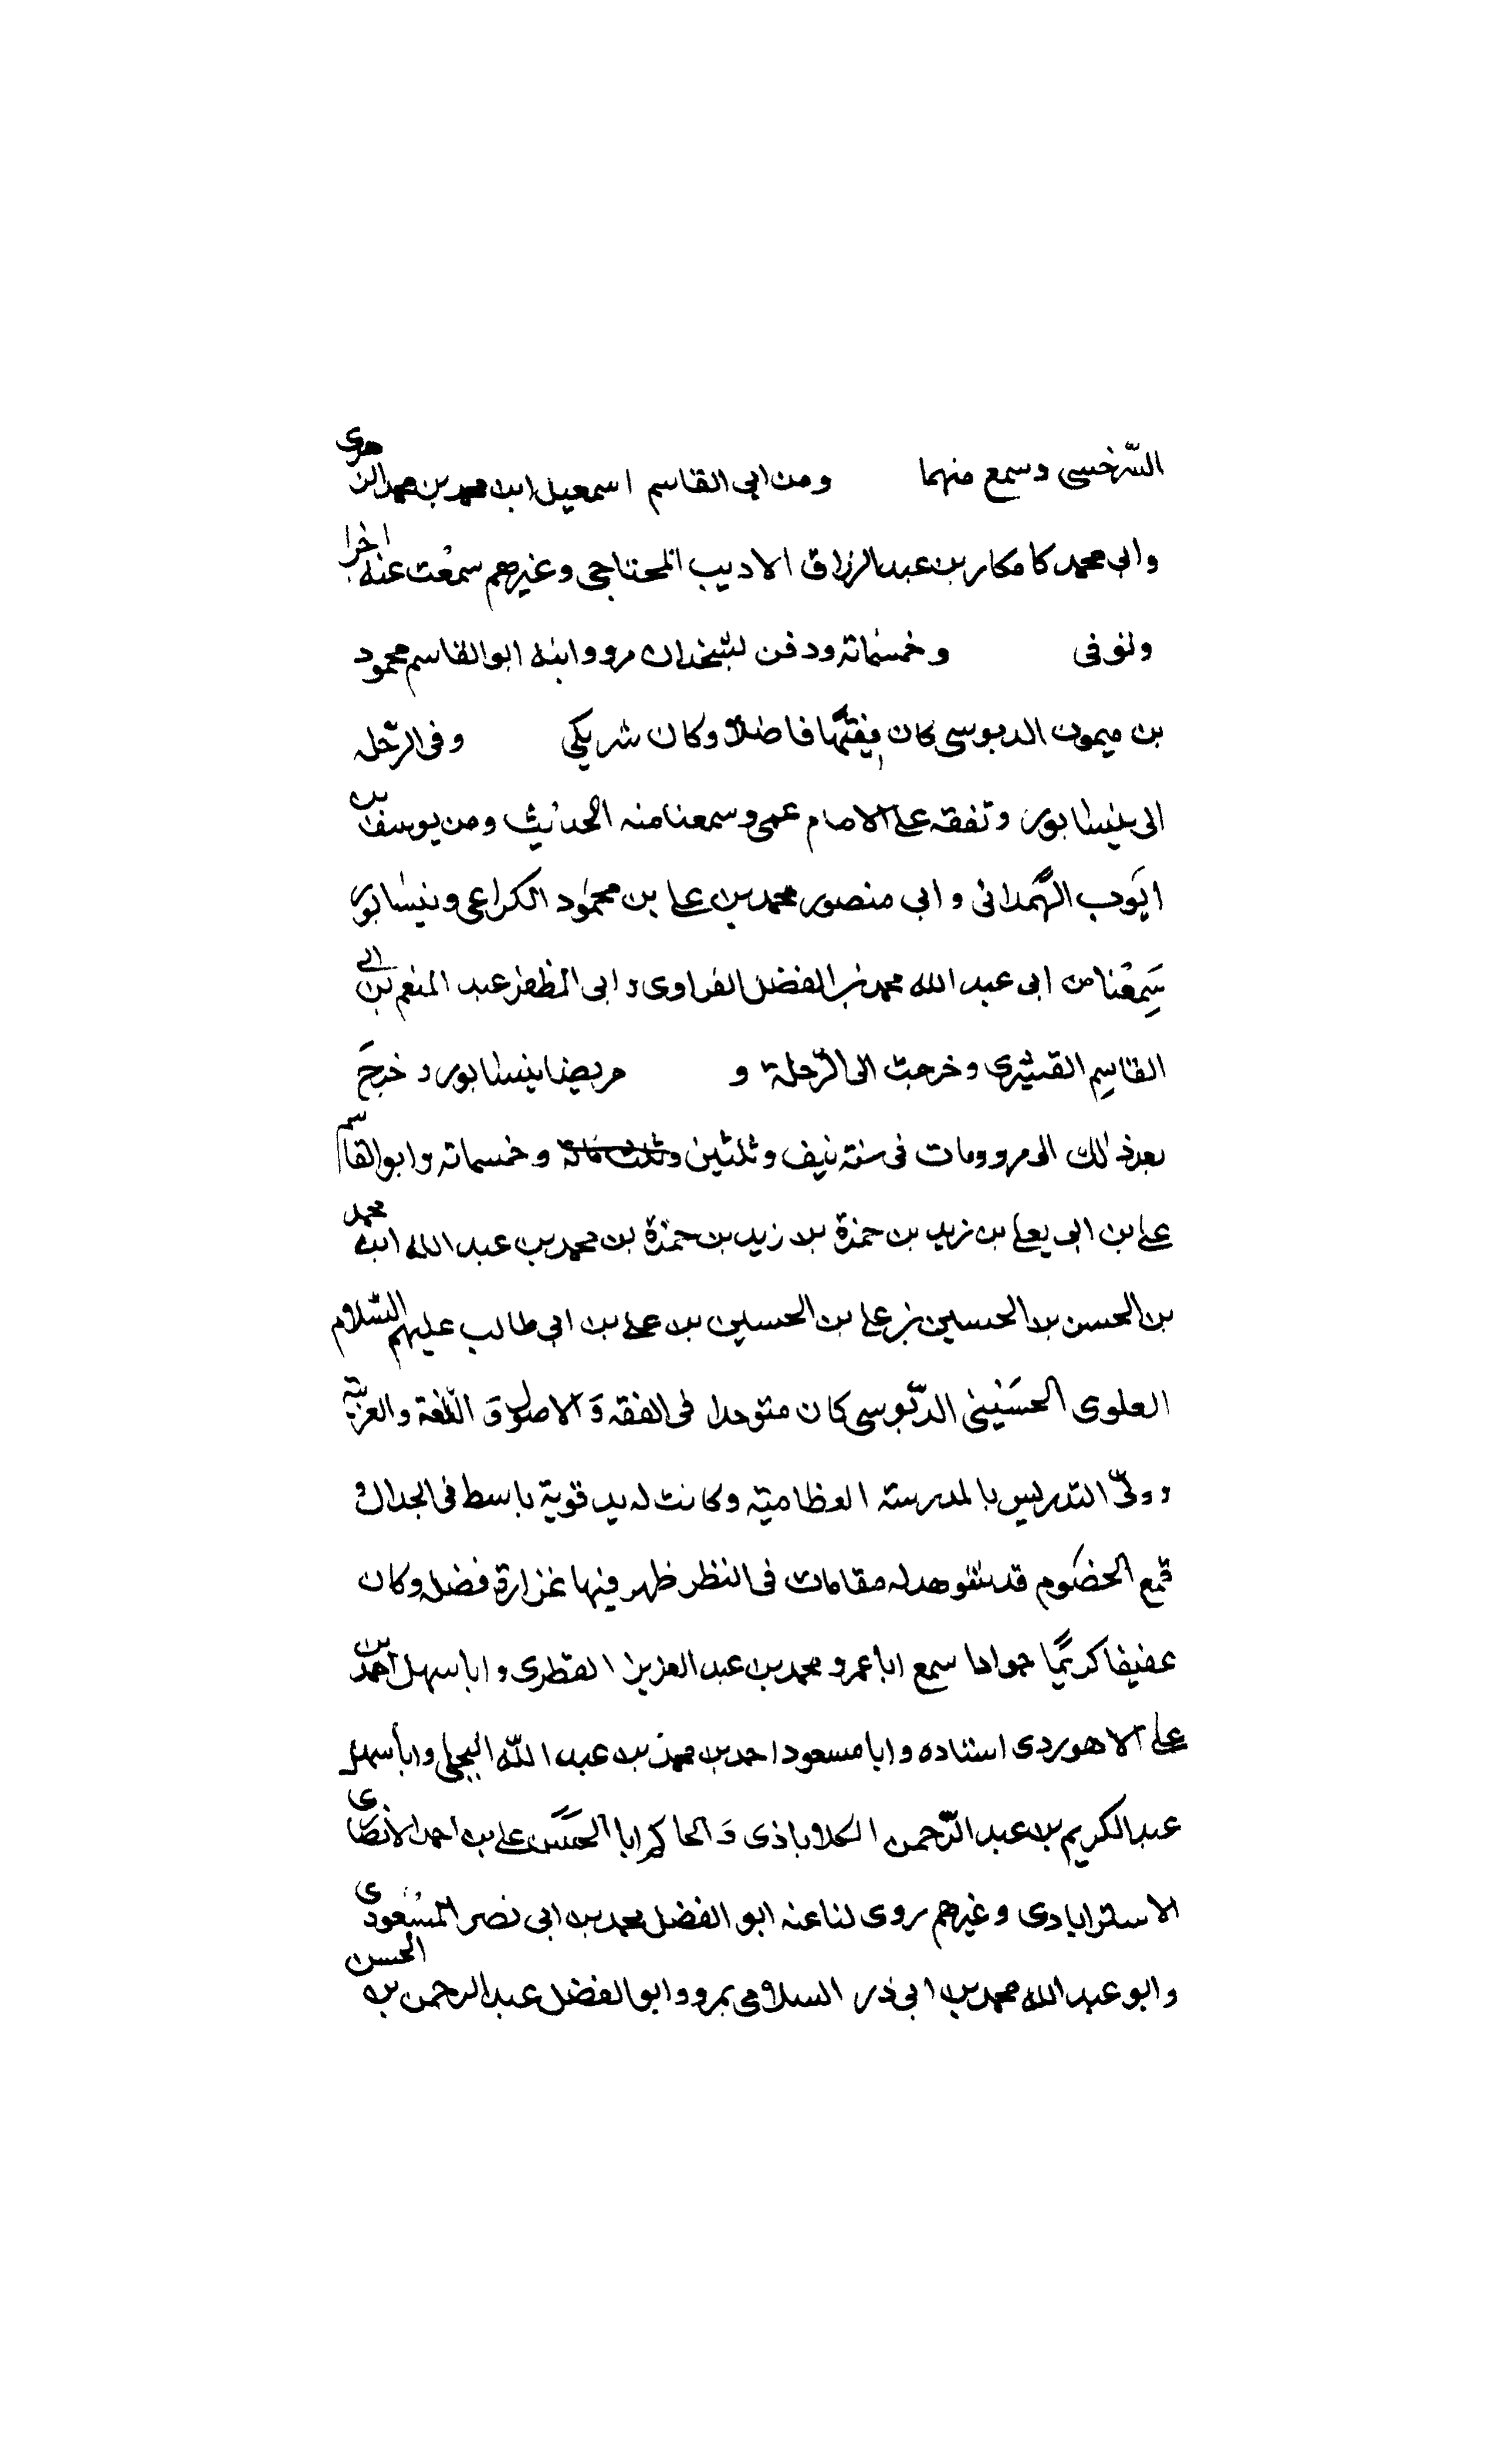 السّرخسى وسمع منهما ومن ابى القاسم اسمعيل ابن محمد بن محمد الزاهرى
وابى محمد كامكار بن عبد الرزاق الاديب المحتاجى وغيرهم سمعت عنه اخرا
وتوفى وخمسمائة ودفن بسنجدان مرو وابنه ابو القاسم محمود
بن ميمون الدبوسى كان فقيها فاضلا وكان شريكى وفى الرّحله
الى نيسابور وتفقه على الامام عمى وسمعنا منه الحديث ومن يوسف بن
ايّوب الهمدانى وابى منصور محمد بن على بن محمود الكراعى ونيسابور
سَمِعْنا من ابى عبد الله محمد بن الفضل الفراوى وابى المظفر عبد المنعم بن ابى
القاسِم القشيرى وخرجت الى الرّحلة و مريضا بنيسابور وخرجَ
بعد ذلك الى مرو ومات فى سنة نيف وثلثين وثلث مائة وخمسمائه وابو القاسم
على بن ابى يعلى بن زيد بن حمزة بن زيد بن حمزة بن محمد بن عبد الله ابن محمد
بن الحسن بن الحسين بن على بن الحسين بن على بن ابى طالب عليهم السّلام
العلوى الحسَينى الدّبوسى كان متوحدا فى الفقه وَالاصول وَ اللّغة والعربيّة
وولىّ التدريس بالمدرسة النظاميّه وكانت له يد قوية باسط فى الجدال و
قمع الخصوم قد شوهد له مقامات فى النظر ظهر فيها غزارة فضله وكان
عفيفا كريمًا جوادا سمع ابا عمرو محمد بن عبد العزيز القنطرى وابا سهل احمد بن
على الاهوردى استاده وابا مسعود احمد بن محمد بن عبد اللّه البجلى وابا سهل
عبد الكريم بن عبد الرّحمن الكلاباذى وَالحاكم ابا الحَسَن على بن احمد الانصارى
الاسترابادى وغيرهم روى لنا عنه ابو الفضل محمد بن ابى نصر المسْعودى
وابو عبد الله محمد بن ابى ذر السلامى بمرو وابو الفضل عبد الرحمن بن الحسن